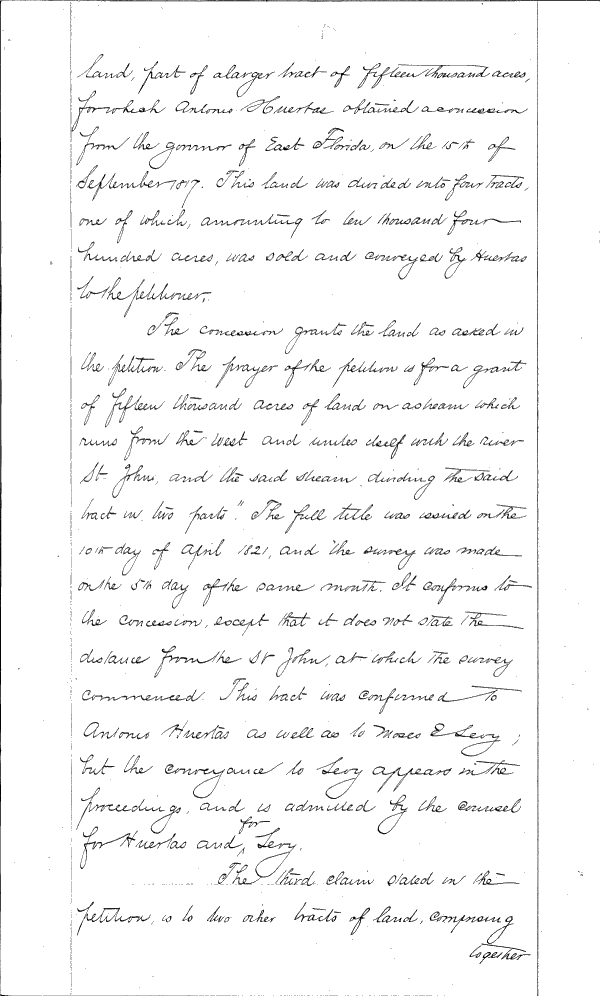 land, part of a larger tract of fifteen thousand acres,
for which Antonio Huertas obtained a concession
from the govrnor of East Florida, on the 15th of
September 1817. This land was divided into four tracts,
one of which, amounting to ten thousand four
hundred acres, was sold and conveyed by Huertas
to the petitioner.
The concession grants the land as asked in
the petition. The prayer of the petition is for a grant
of fifteen thousand acres of land on a stream which
runs from the west and unites itself with the river
St. John, and the said stream dividing the said
tract in two parts". The full title was issued on the
10th day of April 1821, and the survey was made
on the 5th day of the same month. It conforms to
the concession, except that it does not state the
distance from the St John, at which the survey
commenced. This tract was confirmed to
Antonio Huertas as well as to Moses E Levy;
but the conveyance to Levy appears in the
proceedings, and is admitted by the counsel
for Huertas and for Levy.
The third claim stated in the
petition, is to two other tracts of land, comprising
together